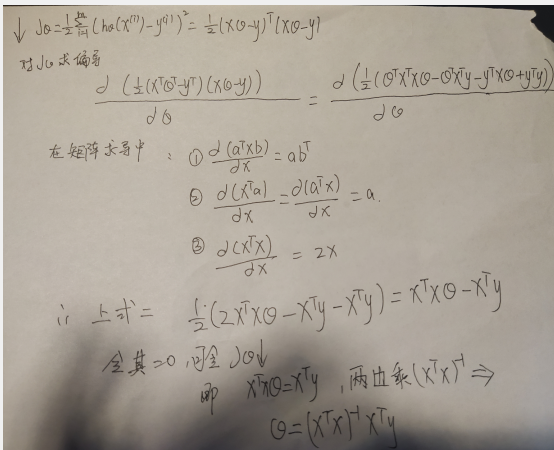 ↓ Jθ = 1/2 Σ_{i=1}^{m} (hθ(x^(i)) - y^(i))² = 1/2 (xθ-y)^T (xθ-y)
对Jθ求偏导
d (1/2 (x^Tθ^T - y^T)(xθ-y)) / dθ = d (1/2 (θ^Tx^Txθ - θ^Tx^Ty - y^Txθ + y^Ty)) / dθ
在矩阵求导中: ① d(a^Txb)/dx = ab^T
② d(x^Ta)/dx = d(a^Tx)/dx = a.
③ d(x^Tx)/dx = 2x
∴ 上式 = 1/2 (2x^Txθ - x^Ty - x^Ty) = x^Txθ - x^Ty
令其=0, 可令Jθ↓
即 x^Txθ = x^Ty, 两边乘(x^Tx)^-1 ⇒
θ = (x^Tx)^-1 x^Ty